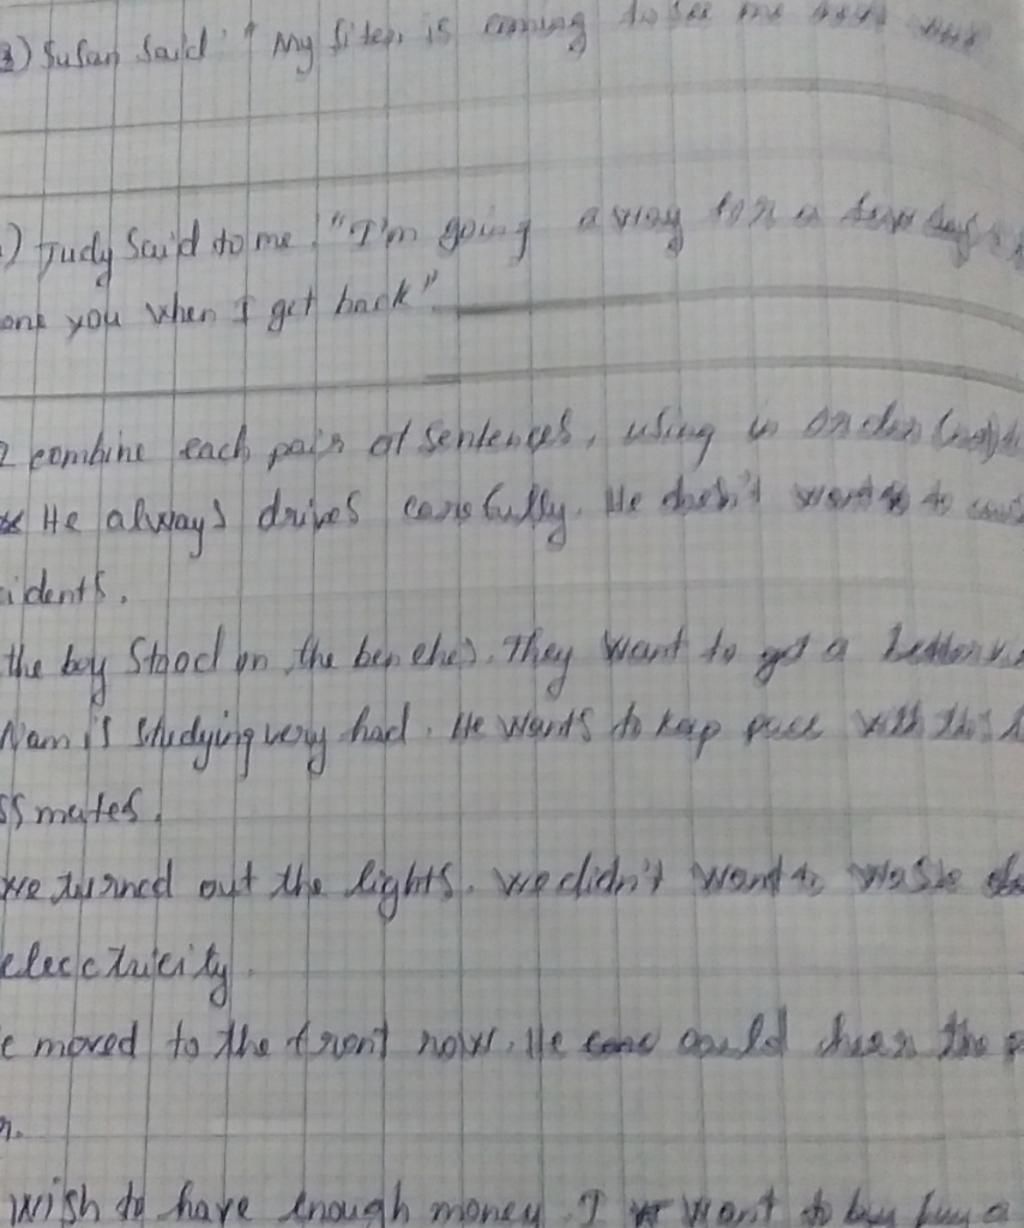 3) Susan Said " My sites is coming to see me next
) Judy Said to me : "I'm going away for a few days
one you when I get back"
2 combine each pair of sentences, using in order (not)
He always drives carefully. He doesn't want to
idents.
the boy Stood on the benches. They want to get a better
Nam is Studying very had. He wants to keep pace with
ss mates.
we turned out the lights. we didn't want to waste
elecctricity.
e moved to the front now. He could hear the
n.
wish to have enough money. I want to buy a